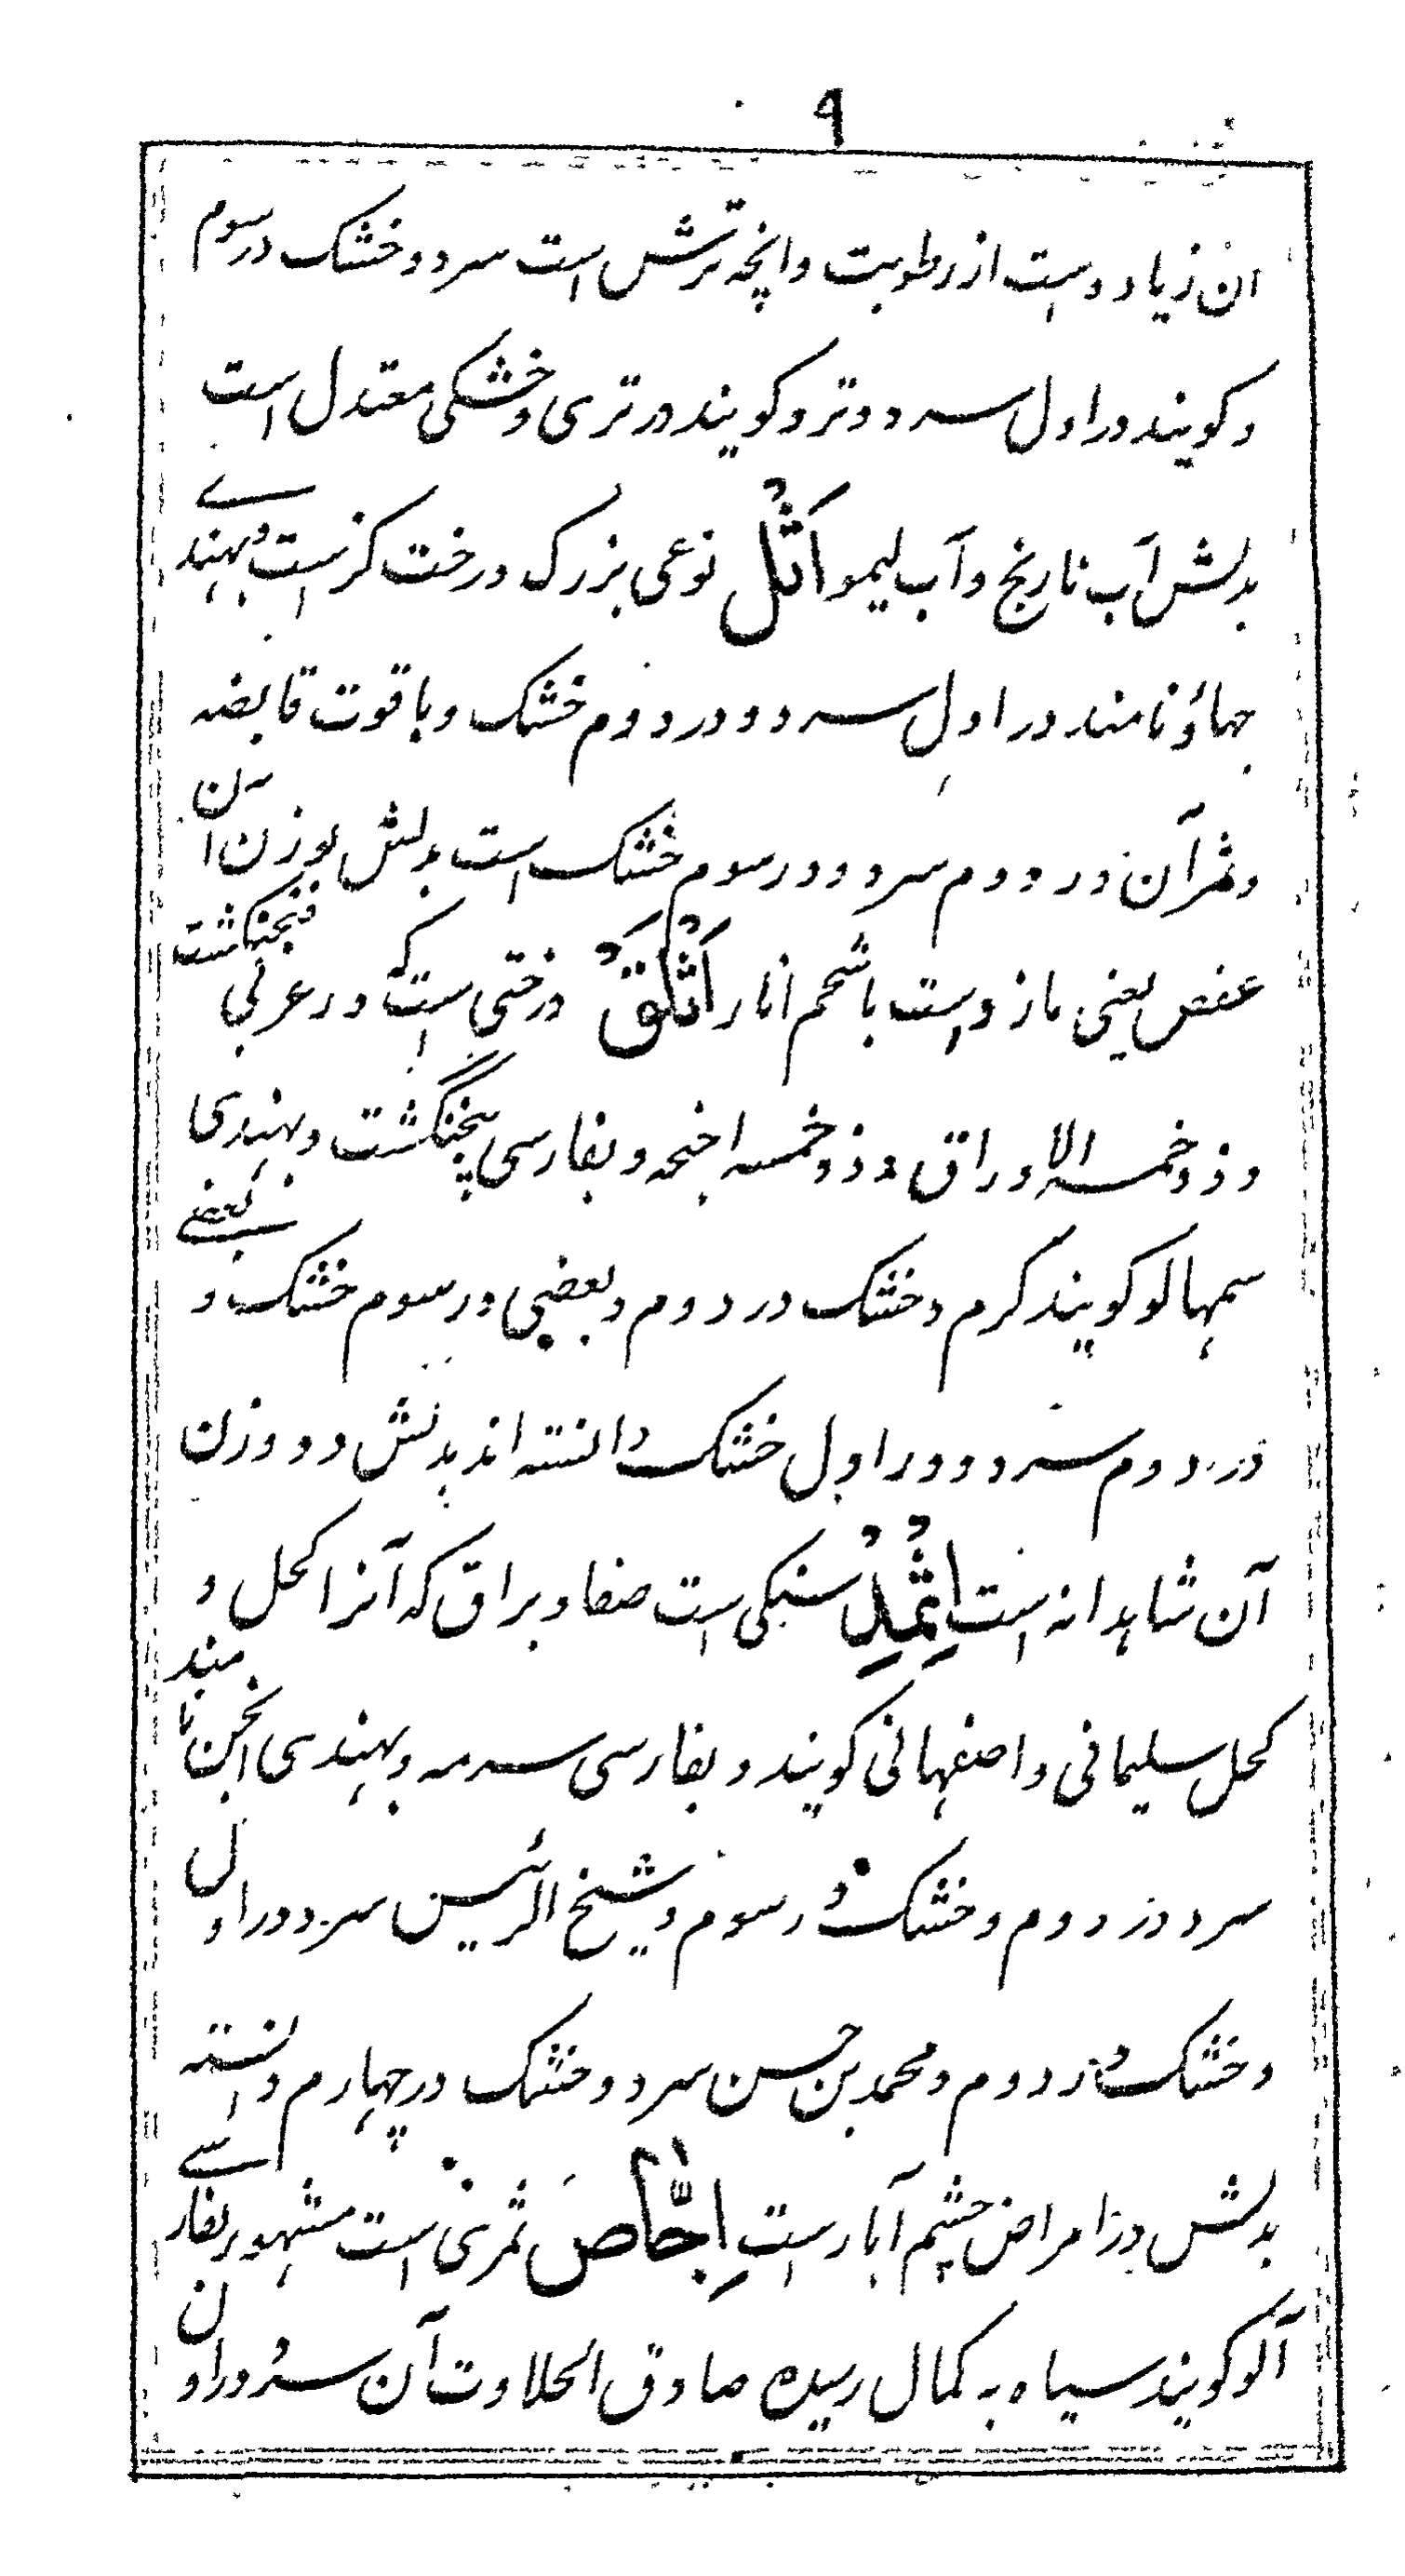 ۹
آن زیاده است از رطوبت و انچه ترش است سرد و خشک در سوم
و کویند در اول سرد و تر و کویند در تری و خشکی معتدل است
بدلش آب نارنج و آب لیمو اَثْل نوعی بزرک درخت کز است و بهندے
جهاؤ نامند در اولِ سرد و در دوم خشک و با قوت قابضه
و ثمر آن در دوم سرد و در سوم خشک است بدلش بوزن آن
عفص یعنی مازو است یا شحم انار اَثْلَق درختی است که در عربی فنجنکشت
و ذو خمسه الاوراق و ذو خمسه اجنحه و بفارسی پنجنگشت و بهندی
سمهالو کویند کرم و خشک در دوم و بعضی در سوم خشک و بعضے
در دوم سرد و در اول خشک دانسته اند بدلش دو وزن
آن شاهدانه است اِثْمِد سنکی است صفا و براق که آنرا کحل و
کحل سلیمانی و اصفهانی کویند و بفارسی سرمه و بهندی انجن نامند
سرد در دوم و خشک در سوم و شیخ الرئیس سرد در اول
و خشک در دوم و محمد بن حسن سرد و خشک در چهارم دانسته
بدلش در امراض چشم آبار است اِجّاص ثمری است مشهور بفارسے
آلو کویند سیاه به کمال رسیده صادق الحلاوت آن سرد در اول